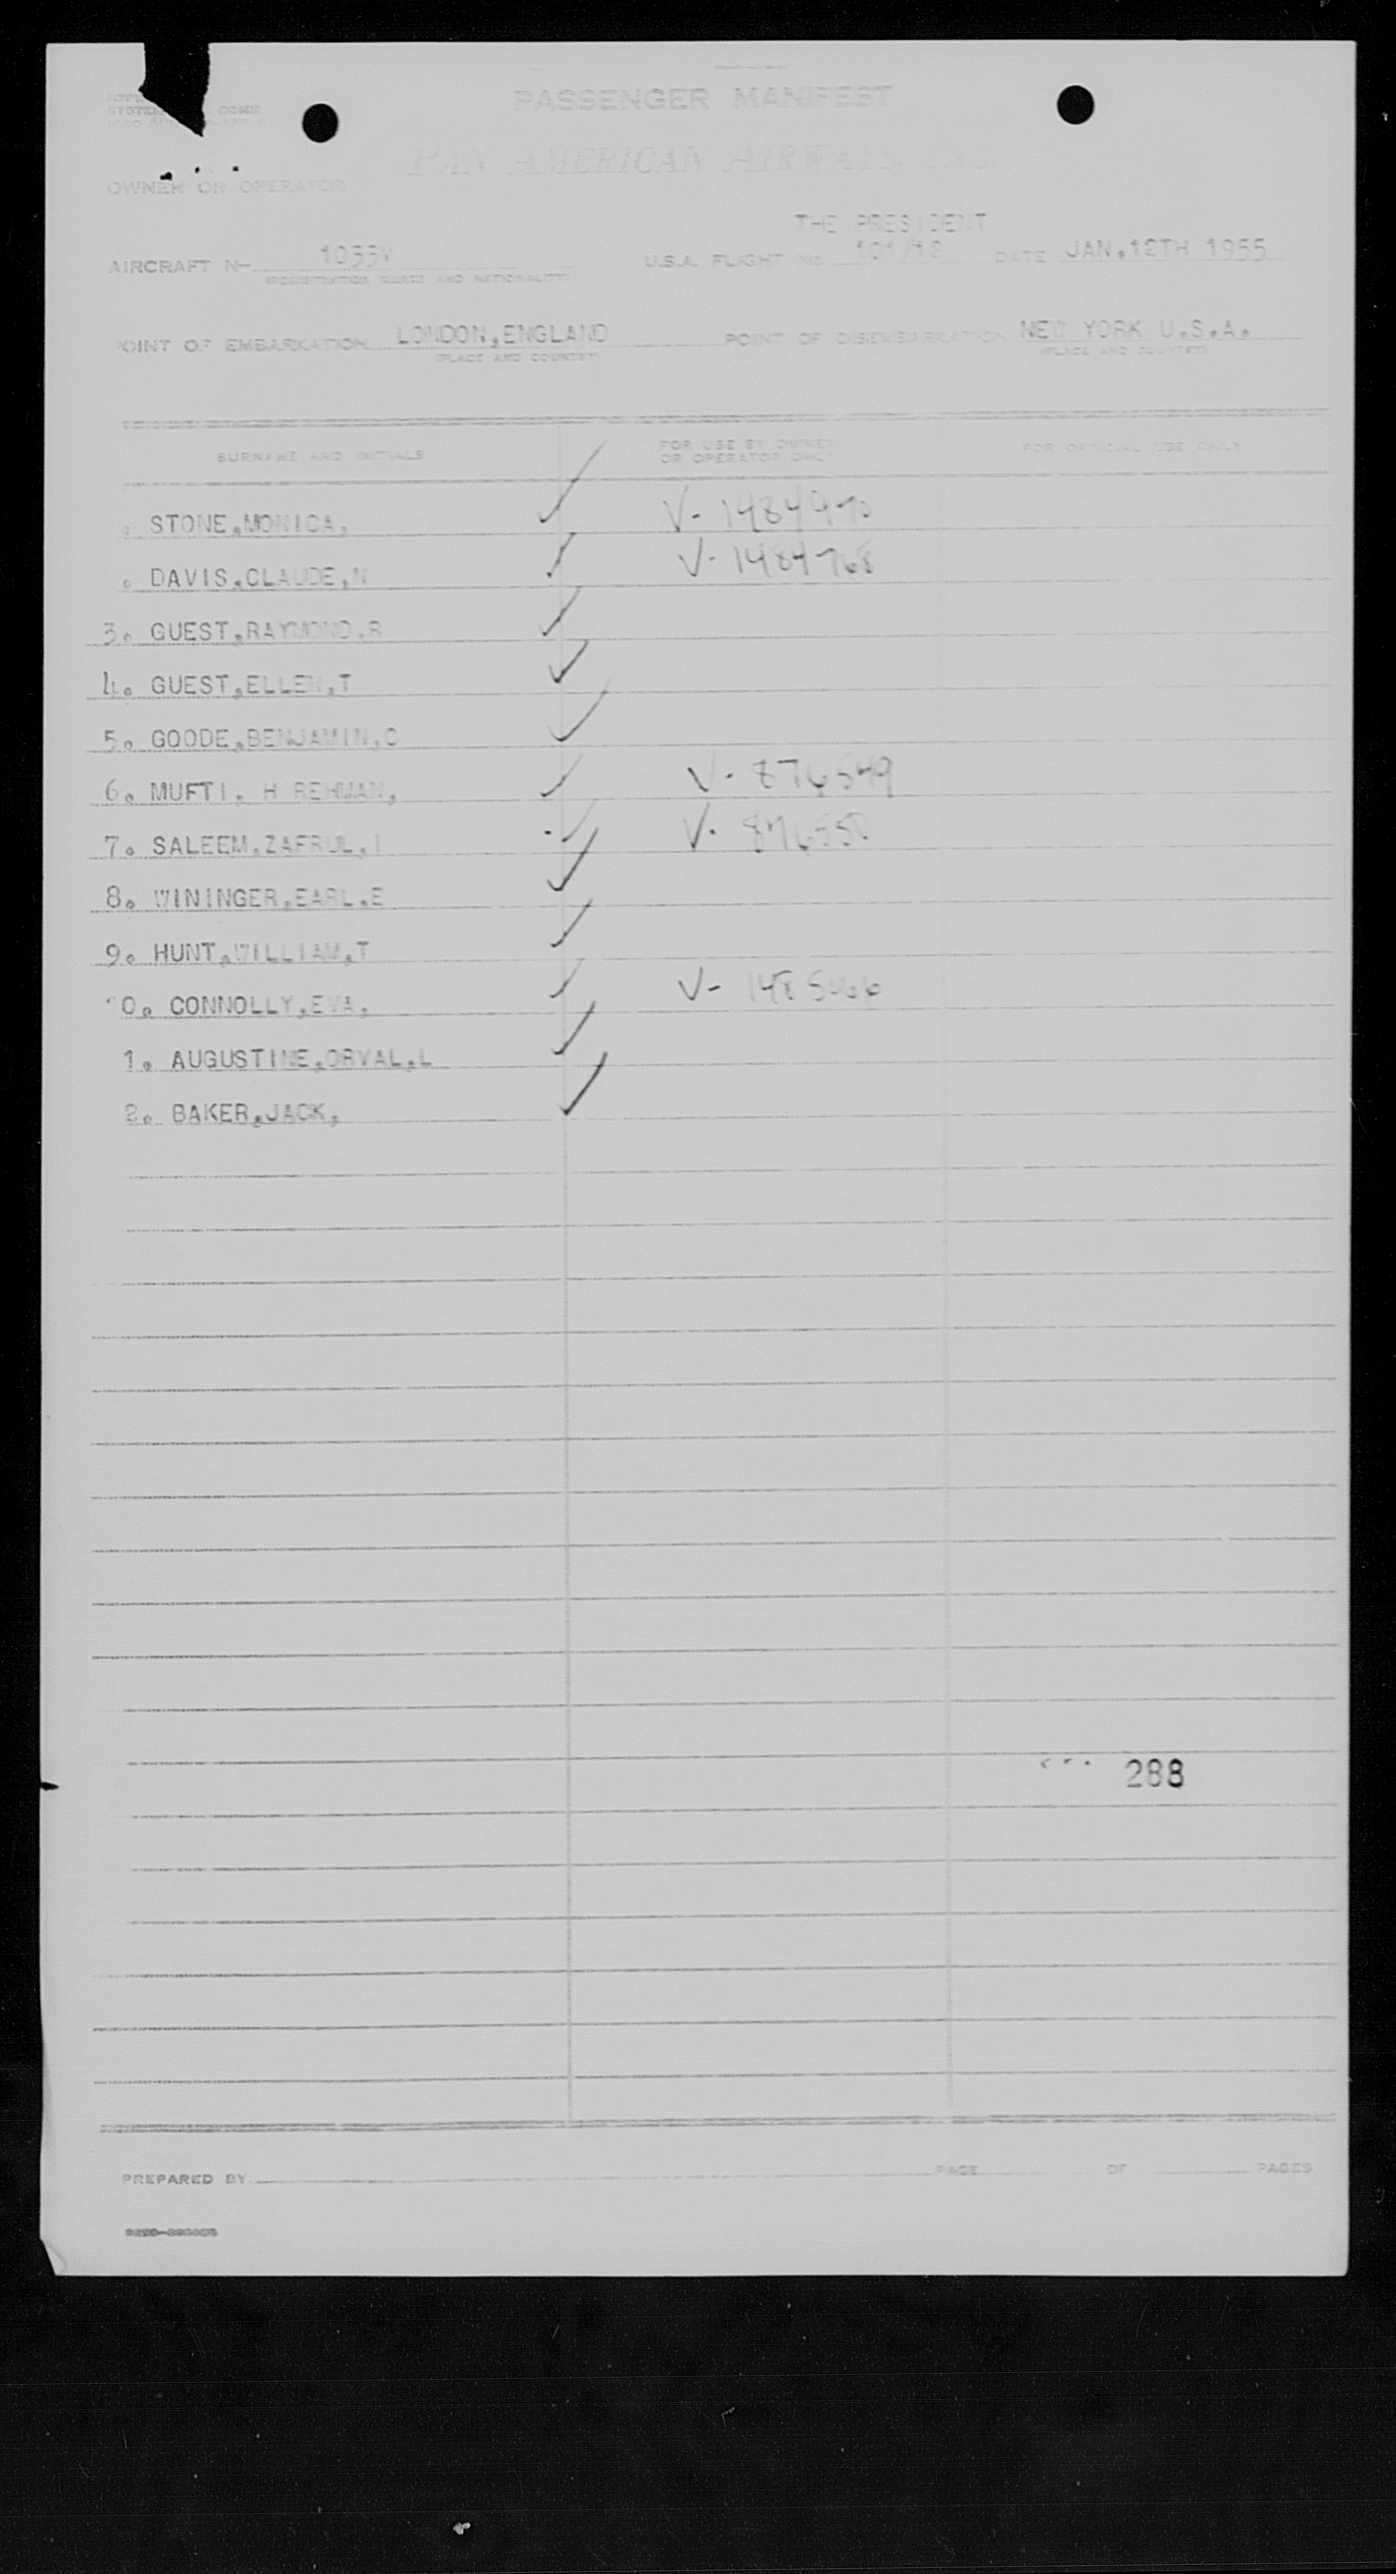 PASSENGER MANIFEST
PAN AMERICAN AIRWAYS
OWNER OR OPERATOR
THE PRESIDENT
AIRCRAFT N- 1033V U.S.A. FLIGHT No 101/12 DATE JAN.12TH 1955
(REGISTRATION MARKS AND NATIONALITY)
POINT OF EMBARKATION LONDON,ENGLAND POINT OF DISEMBARKATION NEW YORK U.S.A.
(PLACE AND COUNTRY) (PLACE AND COUNTRY)
SURNAME AND INITIALS FOR USE BY OWNER OR OPERATOR ONLY FOR OFFICIAL USE ONLY
STONE,MONICA, V- 1484970
DAVIS,CLAUDE,N V- 1484768
3. GUEST,RAYMOND,R
4. GUEST,ELLEN,T
5. GOODE,BENJAMIN,C
6. MUFTI, H REHMAN, V- 876549
7. SALEEM,ZAFRUL,I V- 876550
8. WININGER,EARL,E
9. HUNT,WILLIAM,T
10. CONNOLLY,EVA, V-
1. AUGUSTINE,ORVAL,L
2. BAKER,JACK,
288
PREPARED BY PAGE OF PAGES